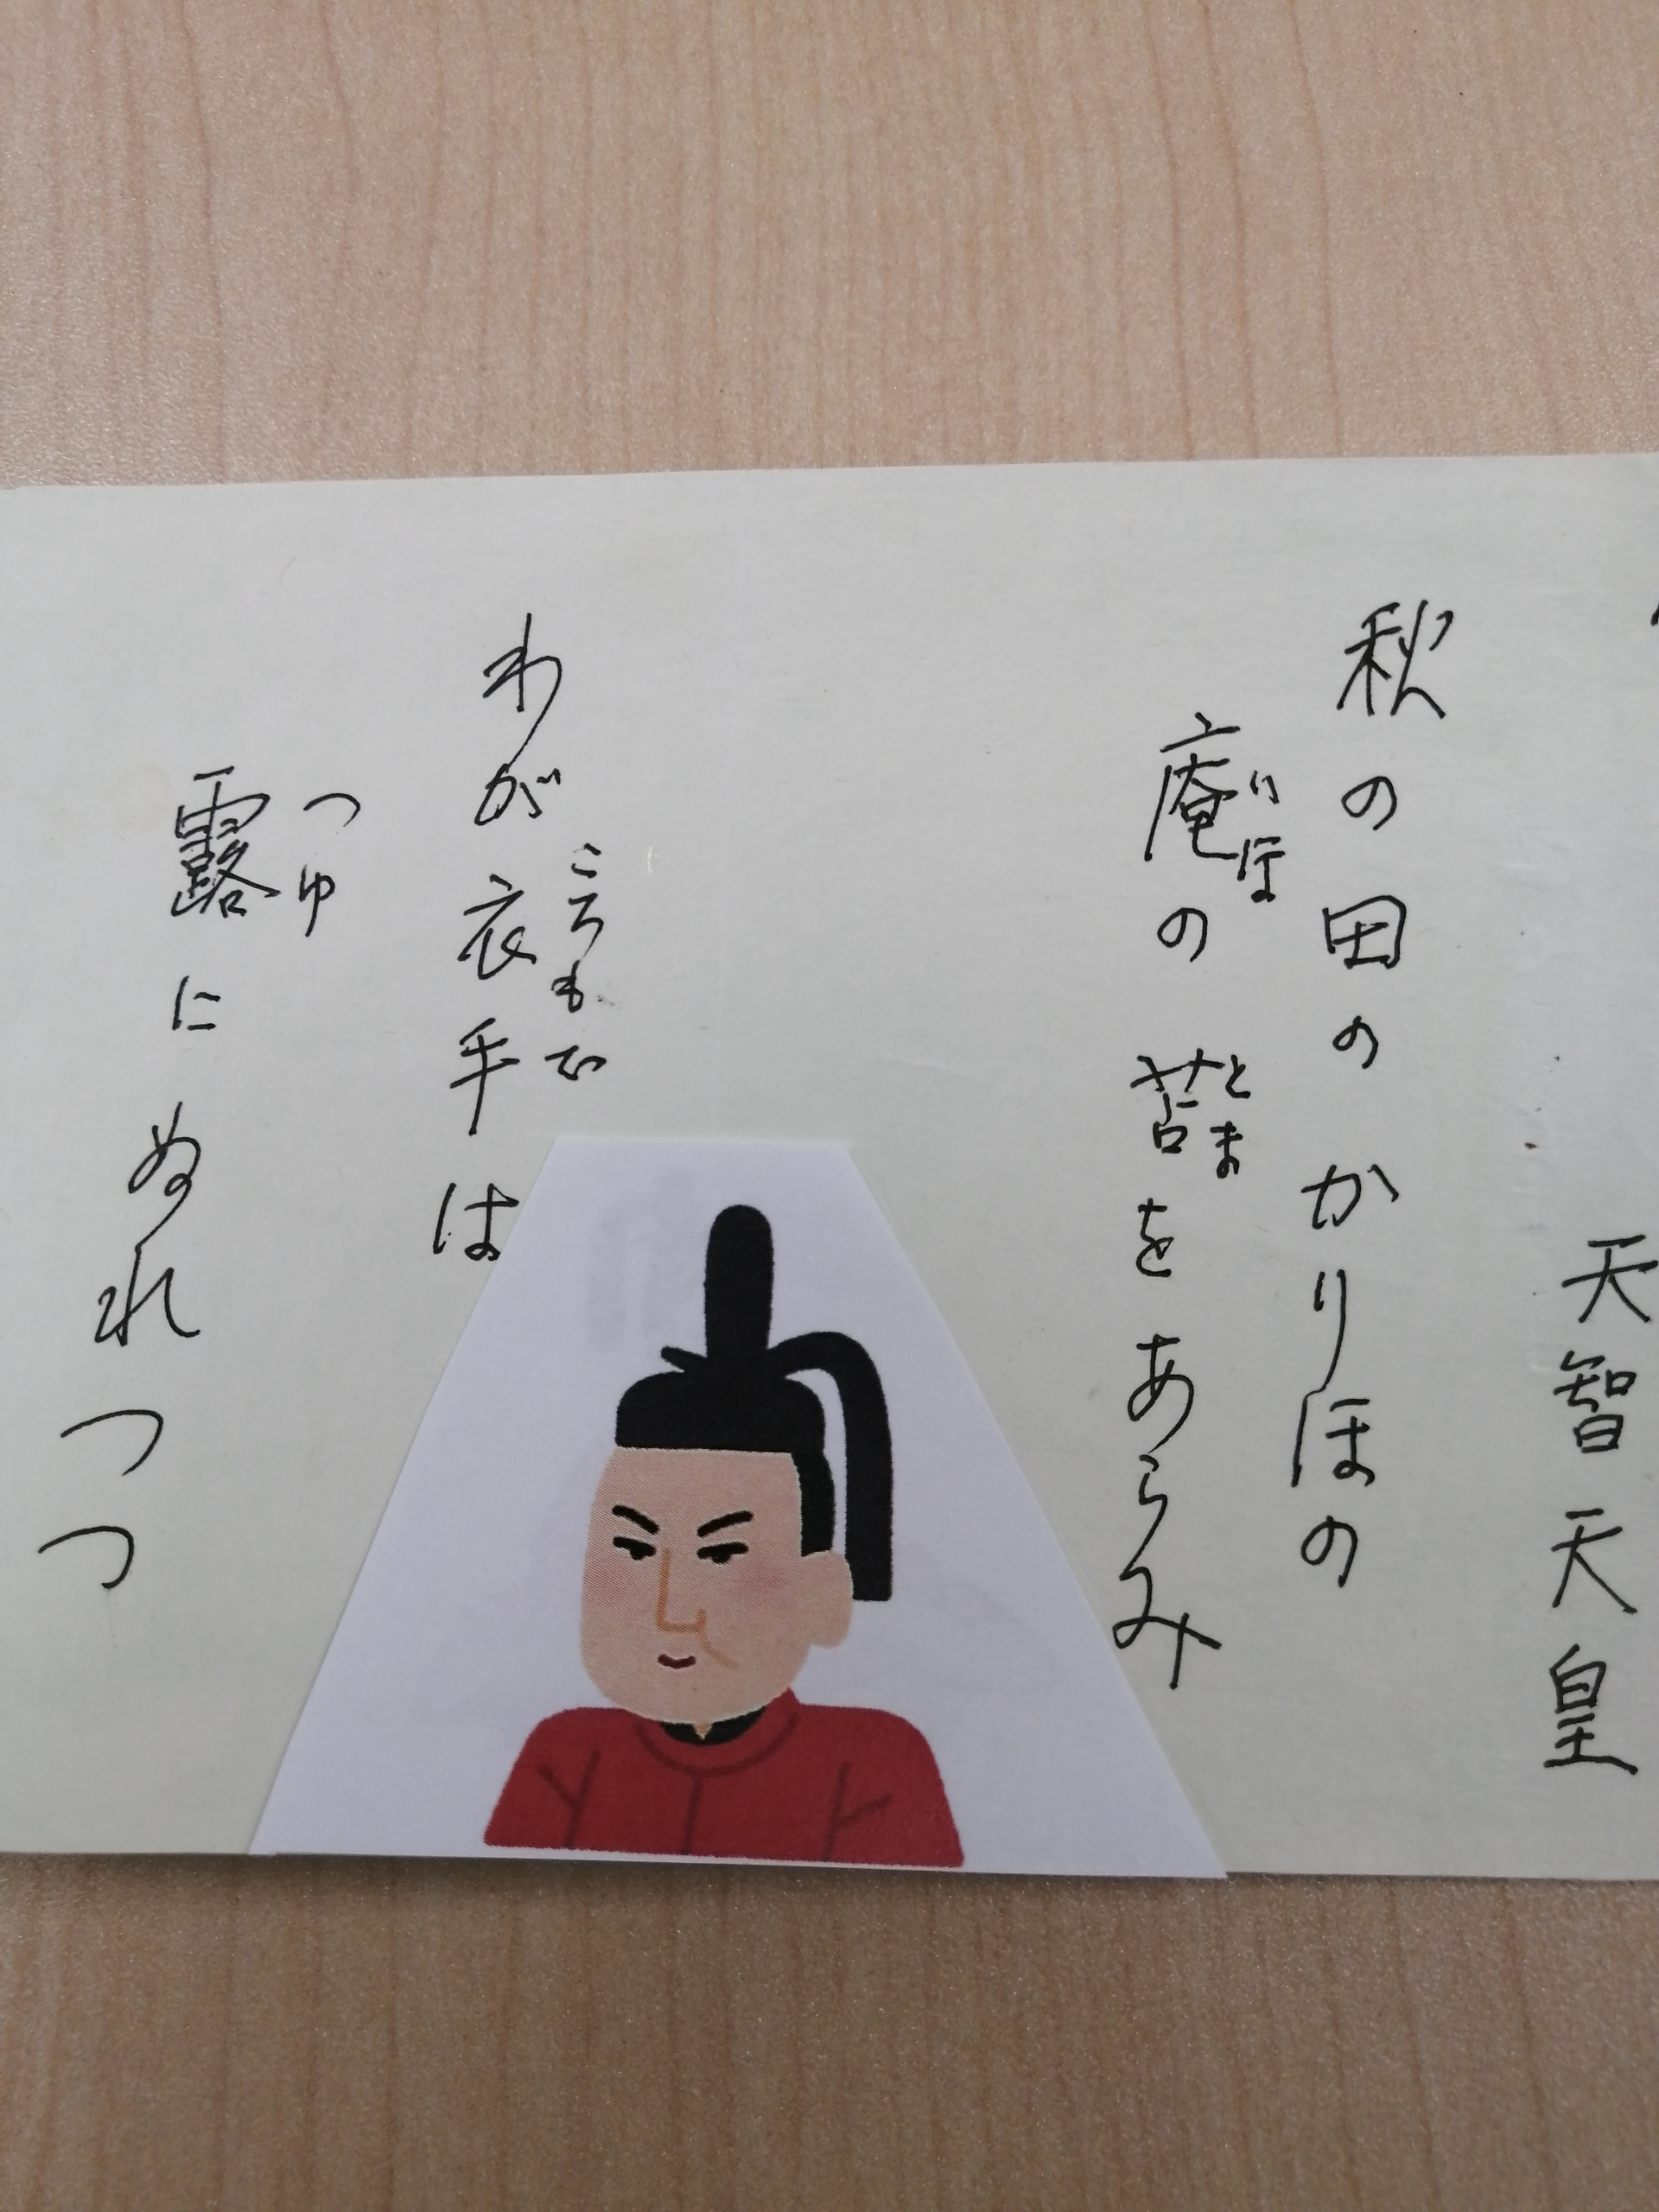 天智天皇
秋の田のかりほの
庵の苫をあらみ
いほ
とま
わが衣手は
ころもで
露にぬれつつ
つゆ